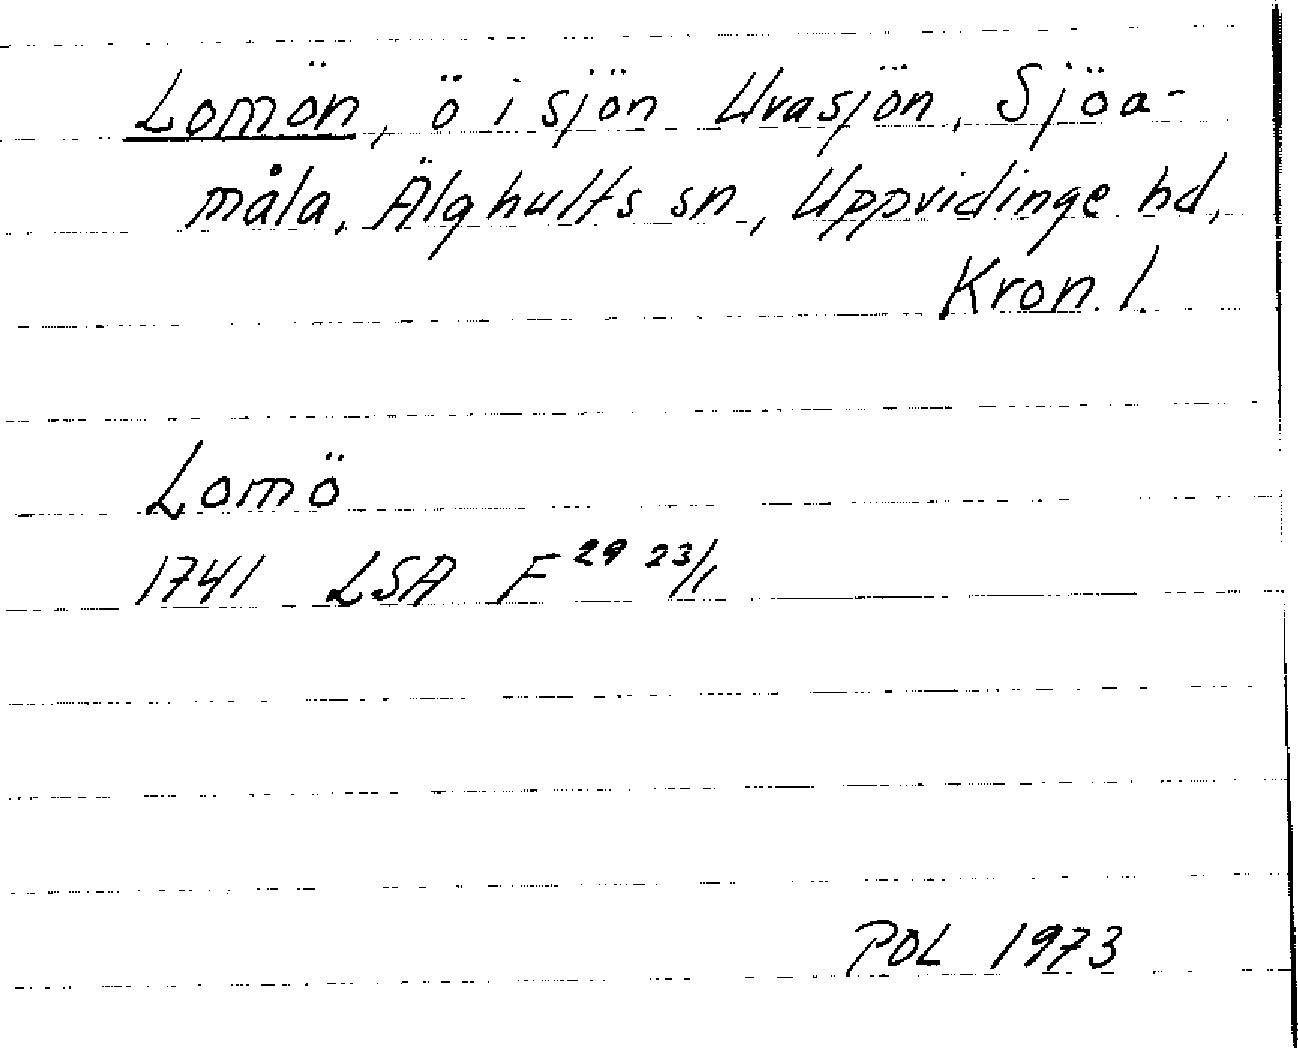 Lomön, ö i sjön Uvasjön, Sjöa-
måla, Älghults sn, Uppvidinge hd,
Kron. l.
Lomö
1741 LSA F 29 23/1
POL 1973